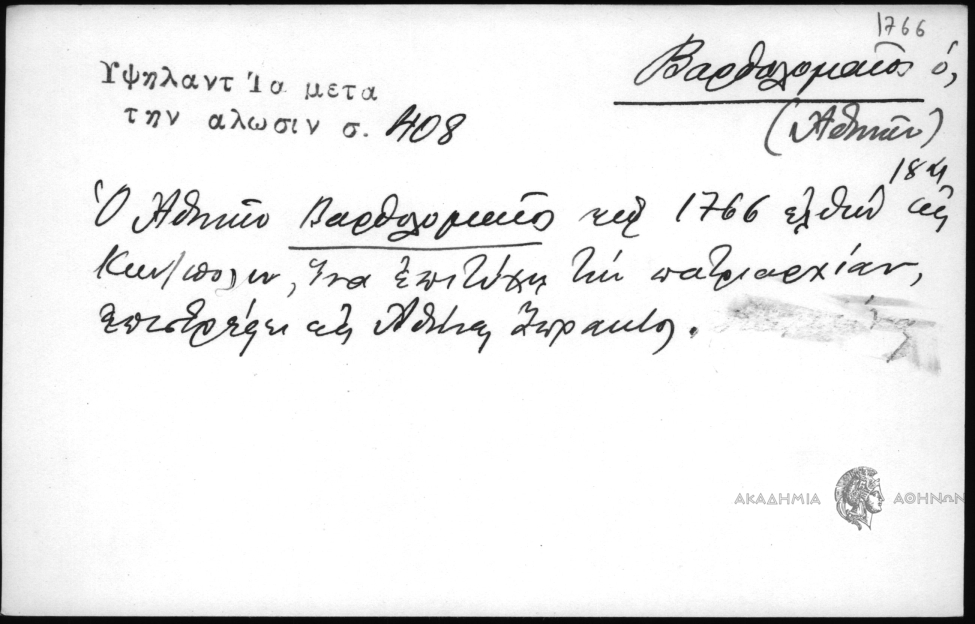 1766
Υψηλαντ Ἰα μετα
την αλωσιν σ. 408
Βαρθολομαῖος ὁ,
(Ἀθηνῶν)
Ὁ Ἀθηνῶν Βαρθολομαῖος τῷ 1766 ἐλθὼν εἰς
Κων/πολιν, ἵνα ἐπιτύχῃ τὴν πατριαρχίαν,
ἐπιστρέφει εἰς Ἀθήνας ἄπρακτος.
ΑΚΑΔΗΜΙΑ ΑΘΗΝΩΝ